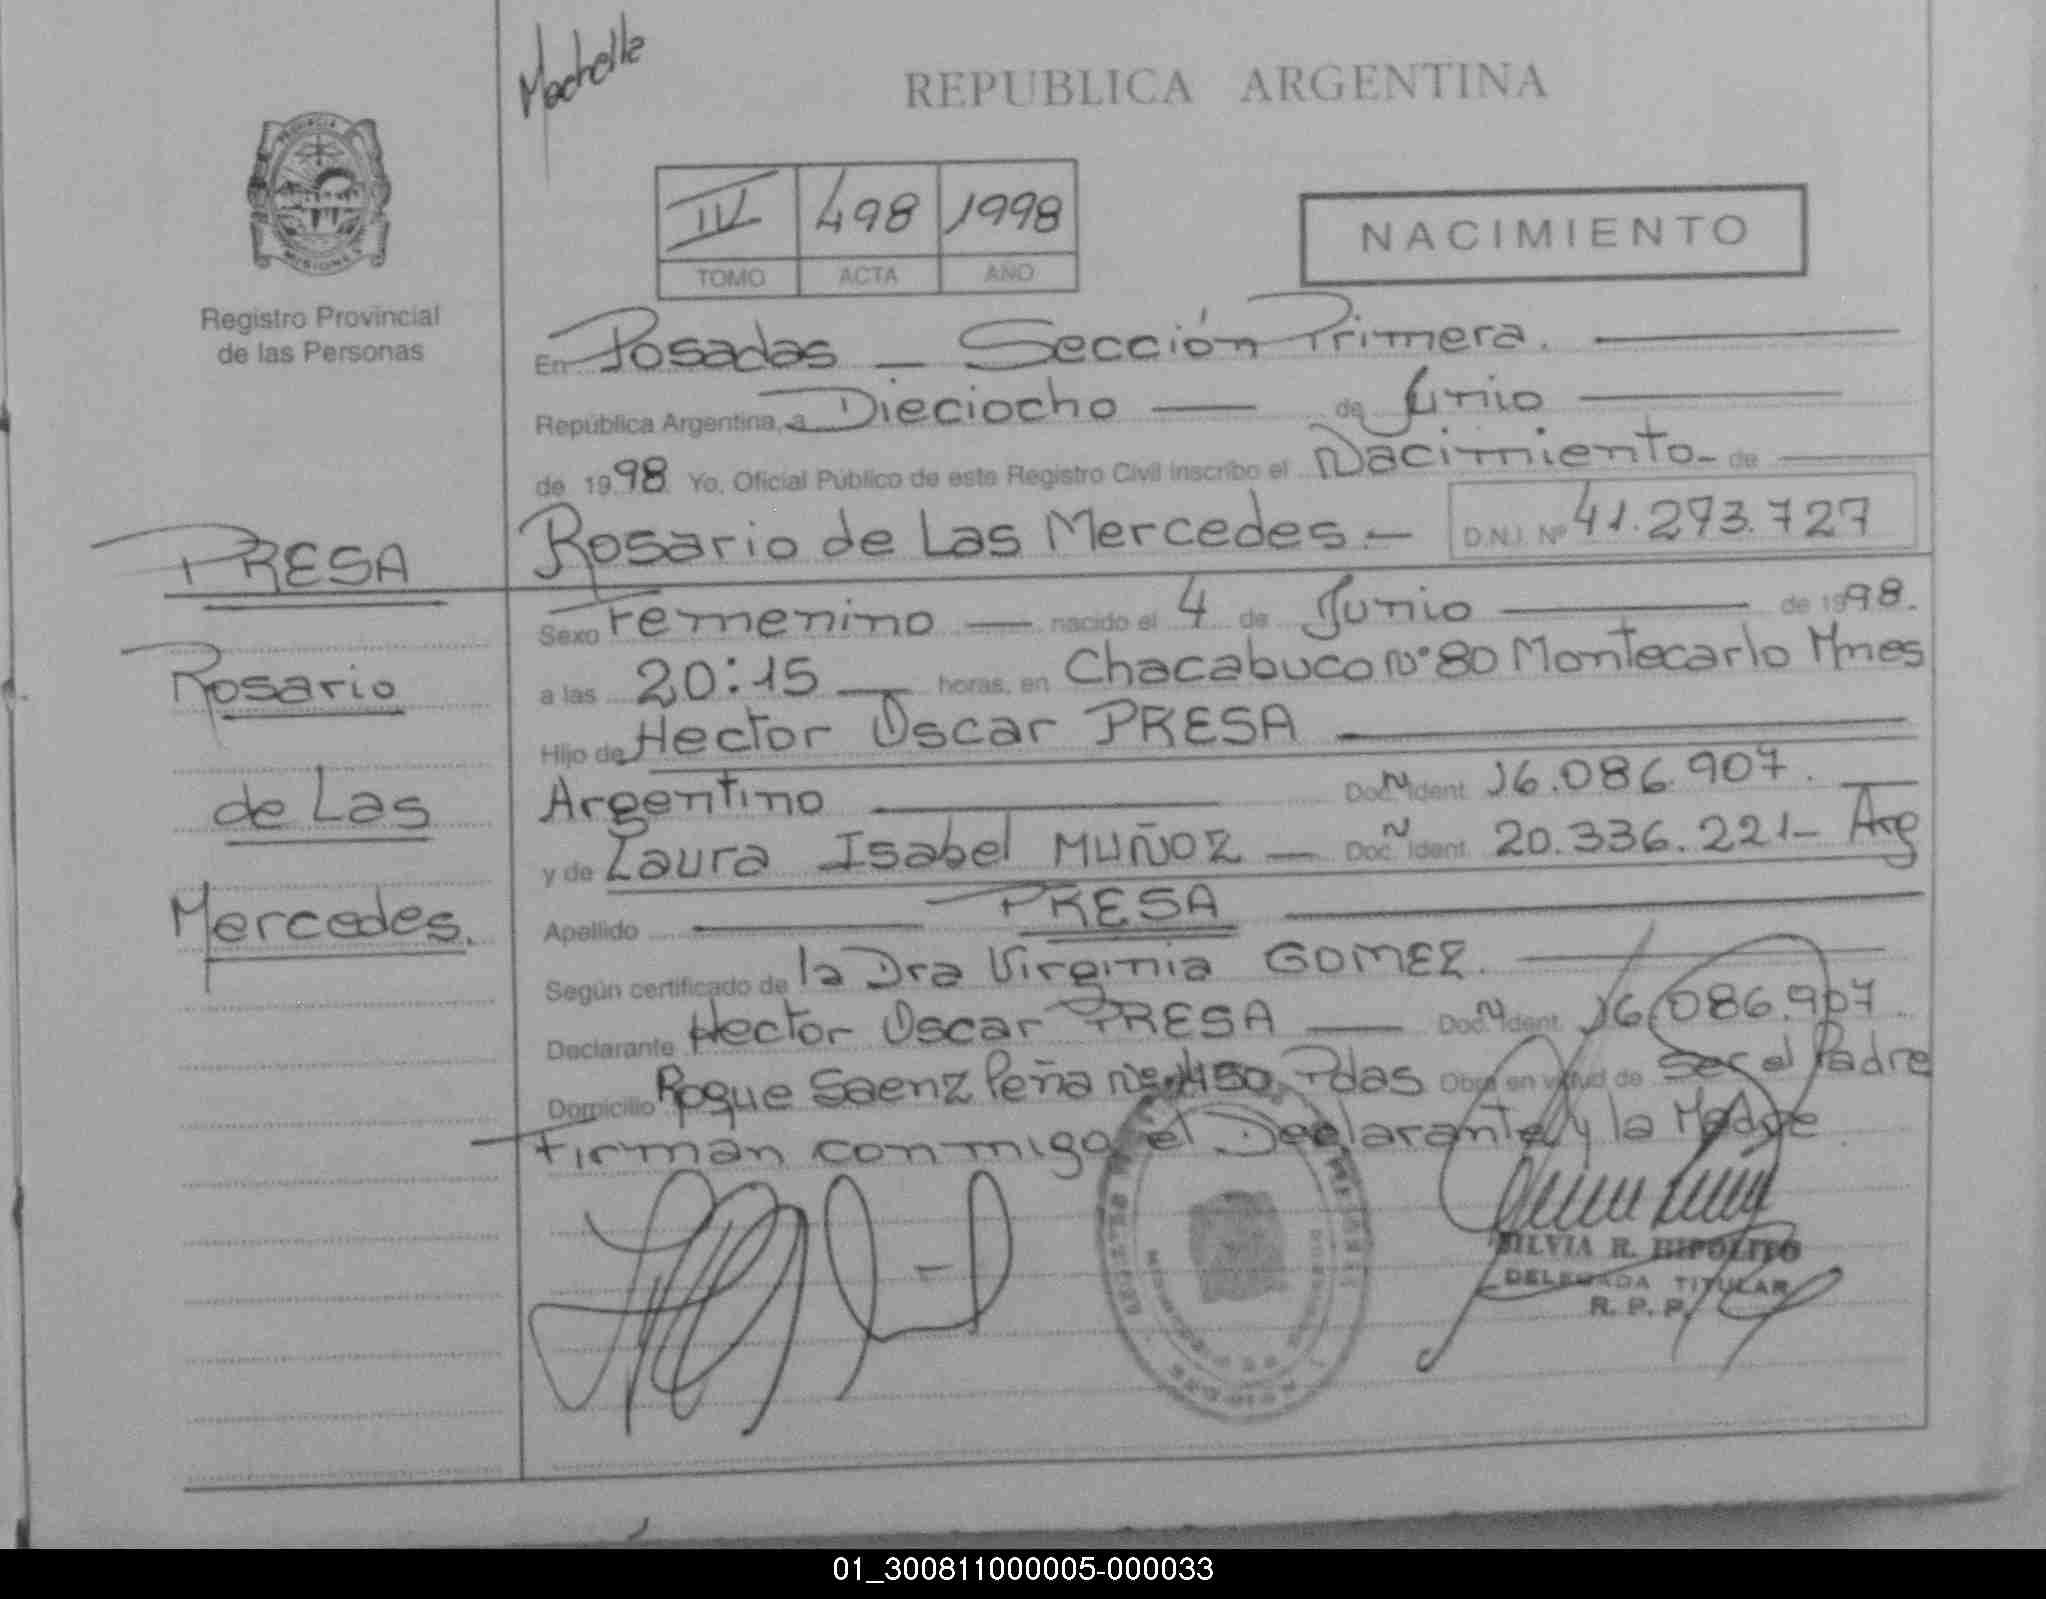 Machelle
REPUBLICA ARGENTINA
PROVINCIA
MISIONES
Registro Provincial
de las Personas
IV 498 1998
TOMO ACTA AÑO
NACIMIENTO
En Posadas _ Sección Primera.
República Argentina, a Dieciocho — de Junio
de 1998 Yo, Oficial Público de este Registro Civil inscribo el Nacimiento- de
PRESA
Rosario
de Las
Mercedes.
Rosario de Las Mercedes.- D.N.I. Nº 41.273.727
Sexo Femenino — nacido el 4 de Junio — de 1998.
a las 20:15 — horas, en Chacabuco Nº 80 Montecarlo Mnes
Hijo de Hector Oscar PRESA
Argentino — Doc. Ident. 16.086.907.
y de Laura Isabel MUÑOZ — Doc. Ident. 20.336.221- Arg
Apellido — PRESA
Según certificado de la Dra Virginia GOMEZ.
Declarante Hector Oscar PRESA — Doc. Ident. 16.086.907
Domicilio Roque Saenz Peña Nº 450 Pdas Obra en virtud de ser el Padre
Firman conmigo el Declarante y la Madre
SILVIA R. HIPOLITO
DELEGADA TITULAR
R. P. P.
01_300811000005-000033